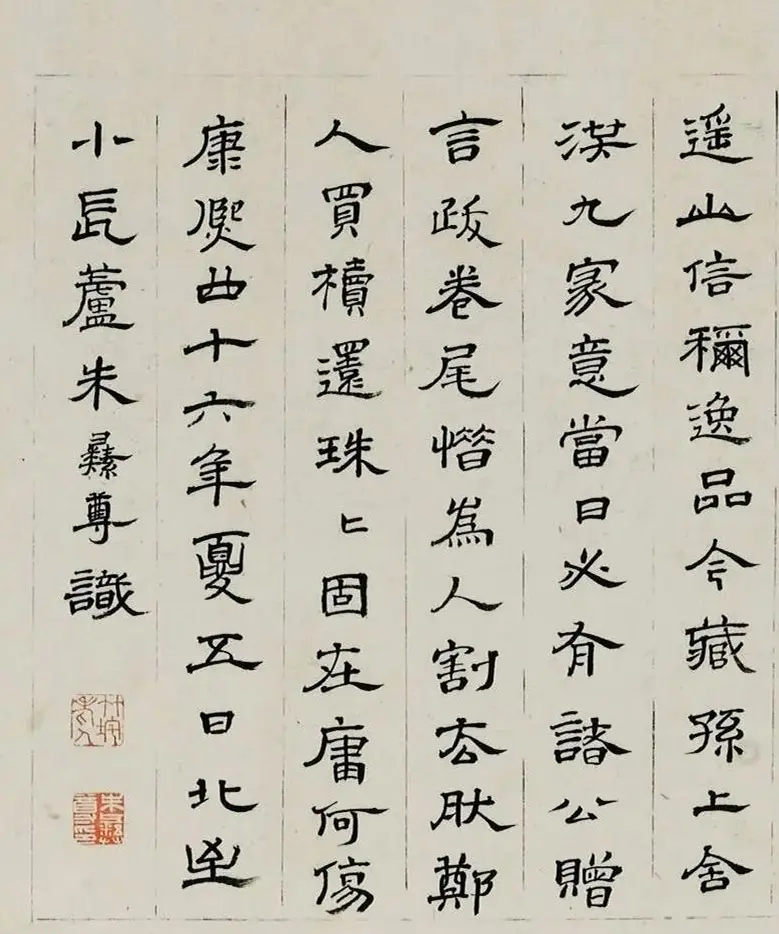 遥山信稱逸品今藏孫上舍
漢九家意當日必有諸公贈
言跋卷尾惜為人割去肰鄭
人買櫝還珠〻固在庸何傷
康熙四十六年夏五日北至
小長蘆朱彝尊識
竹垞老人